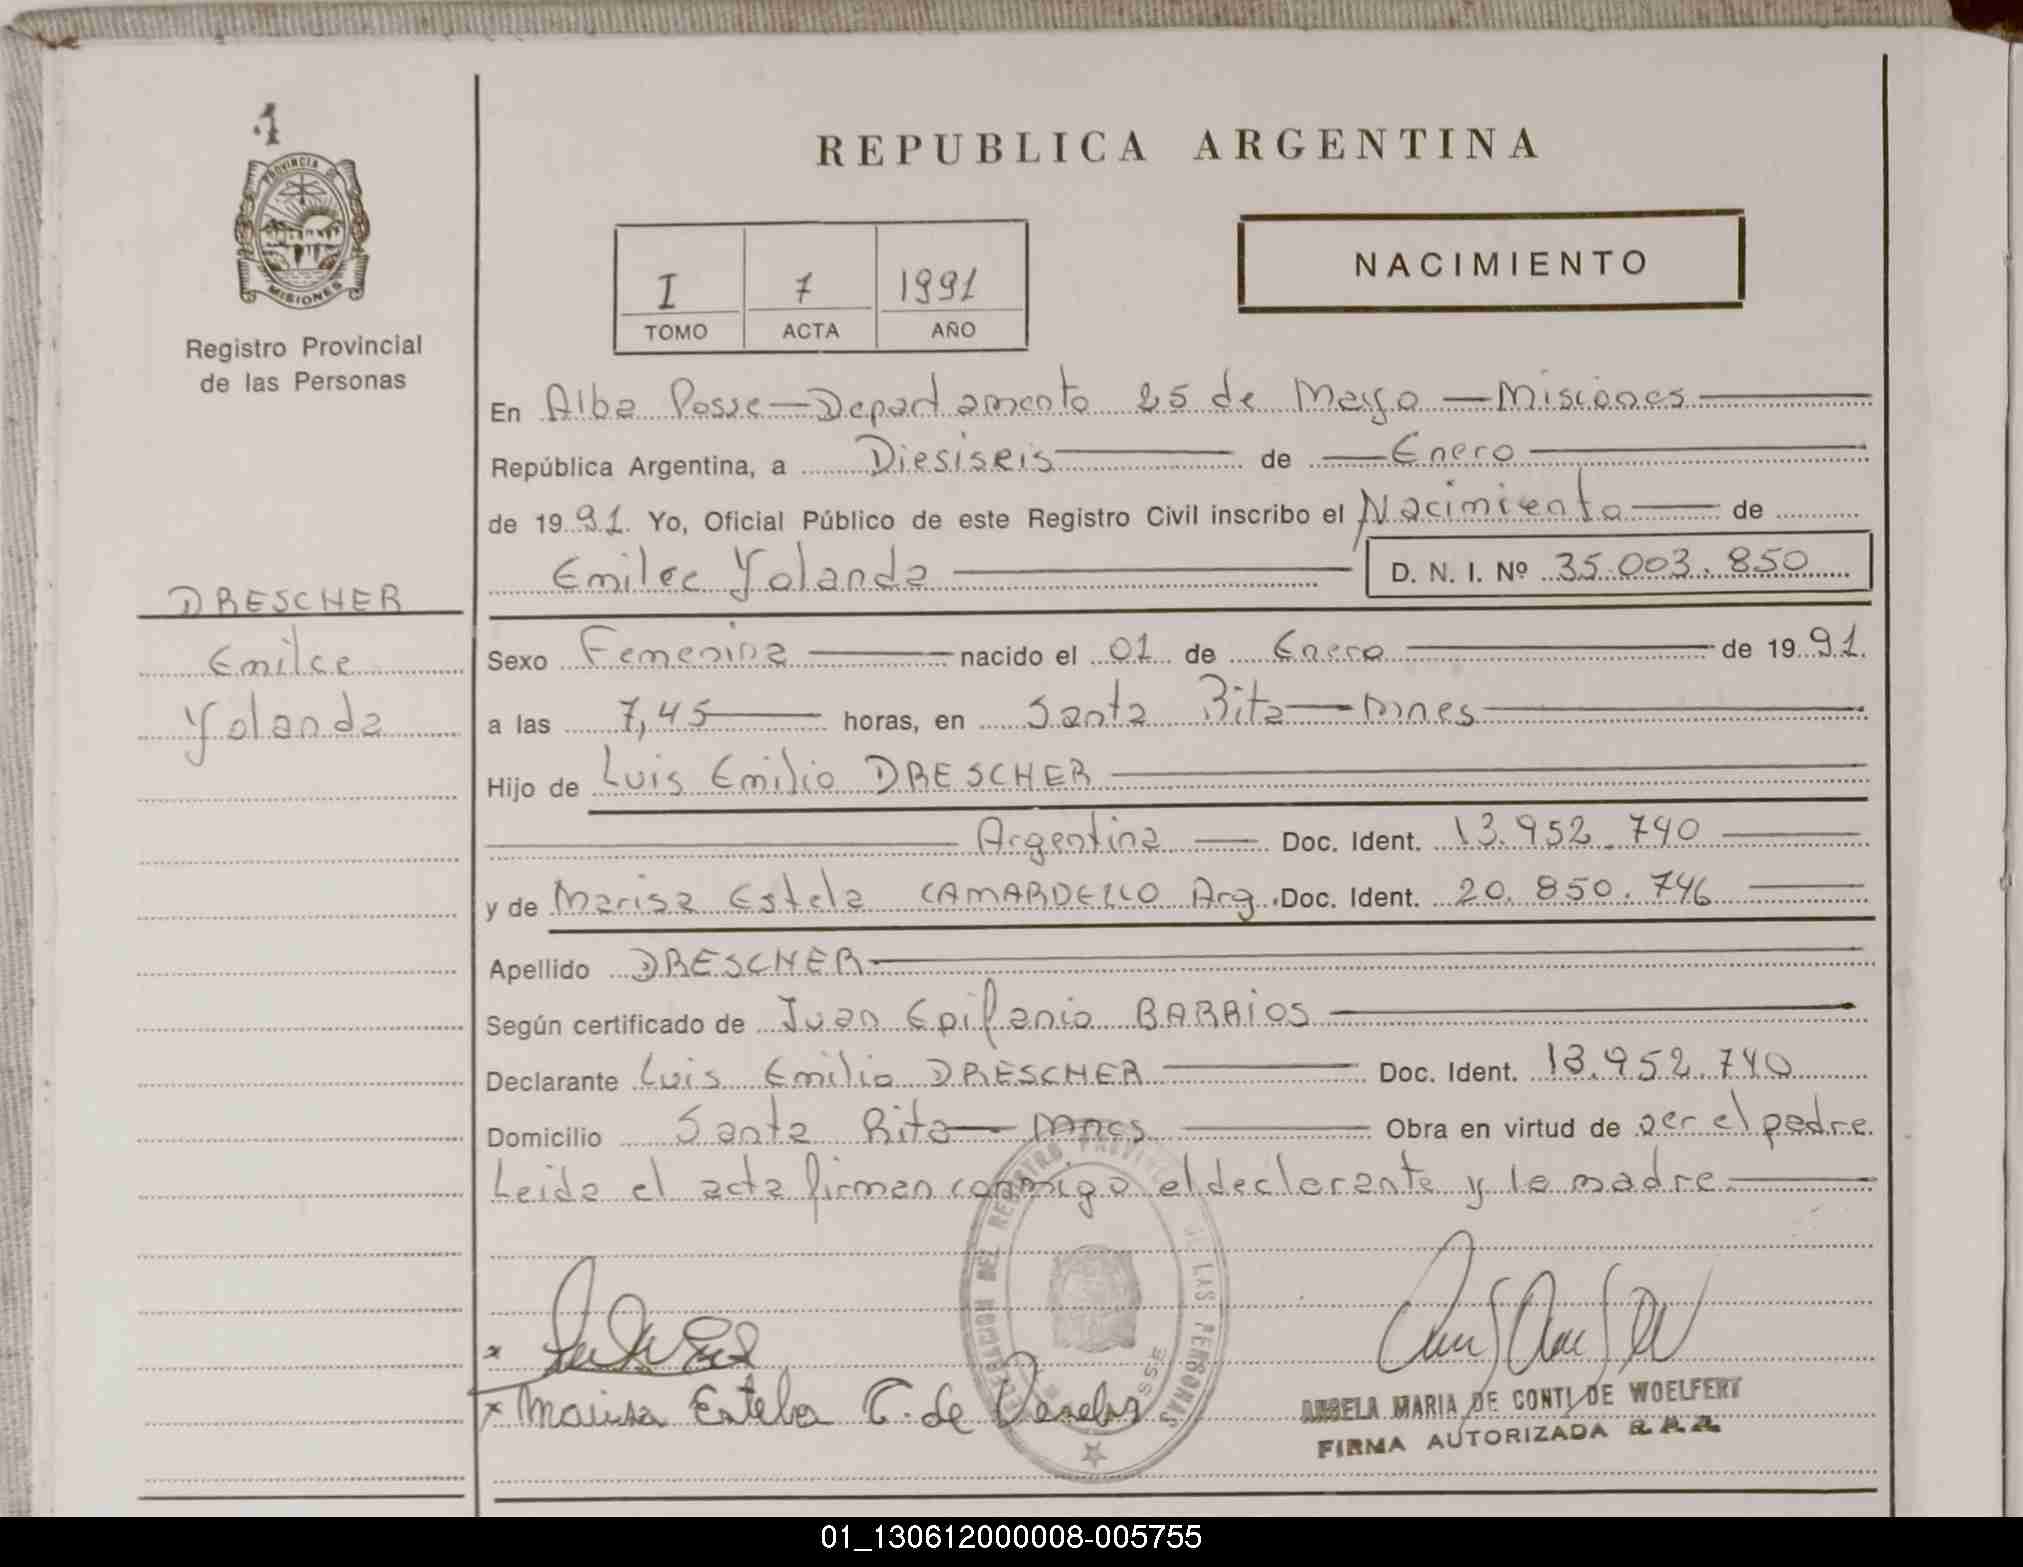 1
PROVINCIA DE
MISIONES
Registro Provincial
de las Personas
DRESCHER
Emilce
Yolanda
REPUBLICA ARGENTINA
I 7 1991
TOMO ACTA AÑO
NACIMIENTO
En Alba Posse — Departamento 25 de Mayo — Misiones
República Argentina, a Diesiseis de Enero
de 1991. Yo, Oficial Público de este Registro Civil inscribo el Nacimiento de
Emilce Yolanda D. N. I. Nº 35.003.850
Sexo Femenina nacido el 01 de Enero de 1991.
a las 7,45 horas, en Santa Rita — Mnes
Hijo de Luis Emilio DRESCHER
Argentina Doc. Ident. 13.952.740
y de Marisa Estela CAMARDELLO Arg. Doc. Ident. 20.850.746
Apellido DRESCHER
Según certificado de Juan Epifanio BARRIOS
Declarante Luis Emilio DRESCHER Doc. Ident. 13.952.740
Domicilio Santa Rita — Mnes Obra en virtud de ser el padre.
Leida el acta firman conmigo el declarante y la madre.
DEL REGISTRO PROVINCIAL DE LAS PERSONAS
x
x Marisa Estela C. de Drescher
ANGELA MARIA DE CONTI DE WOELFERT
FIRMA AUTORIZADA
01_130612000008-005755